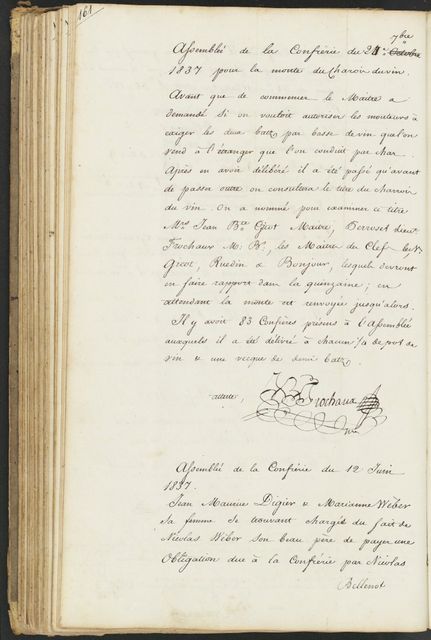 161
7bre
Assemblé de la Confrérie du 24e Octobre
1837 pour la monte du Charoir du vin.
Avant que de commencer le Maitre a
demandé Si on vouloit autoriser les monteurs à
exiger les deux batz par bosse de vin que l'on
vend à l'étranger que l'on conduit par char.
Après en avoir délibéré il a été passé qu'avant
de passer outre on consultera le titre du charroir
du vin. On a nommé pour examiner ce titre
Mrs Jean Bte Gicot Maitre, Perroset Lieut
Frochaux M. Br, les Maitres du Clef
Gicot, Ruedin & Bonjour, lesquels devront
en faire rapport dans la quinzaine; en
attendant la monte est renvoyée jusqu'alors.
Il y avoit 83 Confrères présens à l'Assemblée
auxquels il a été délivré à chacun 1/2 de pot de
vin & une vecque de demi batz.
atteste, Frochaux
Assemblé de la Confrérie du 12 Juin
1837.
Jean Maurice Digier & Marianne Wéber
Sa femme Se trouvant chargés du fait de
Nicolas Wéber Son beau père de payer une
Obligation due à la Confrérie par Nicolas
Bellenot